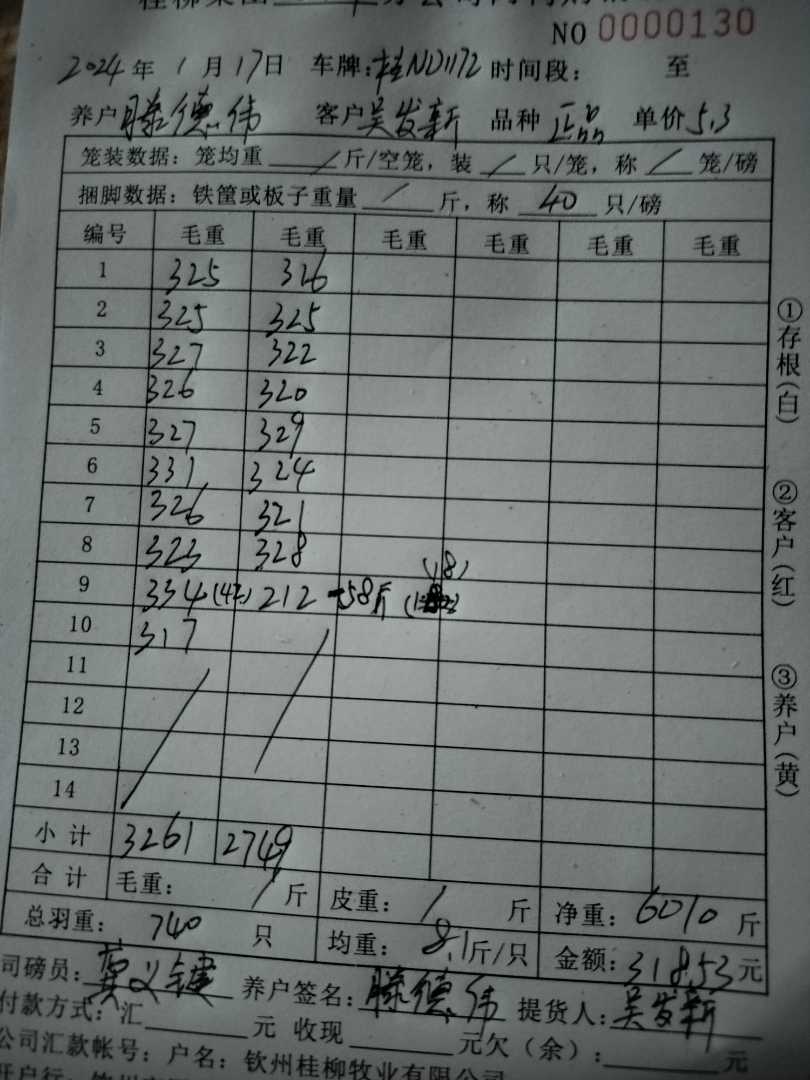 NO 0000130
2024 年 1 月 17 日 车牌: 桂ND1172 时间段: 至
养户 滕德伟 客户 吴发新 品种 正品 单价 5.3
笼装数据: 笼均重 / 斤/空笼, 装 / 只/笼, 称 / 笼/磅
捆脚数据: 铁筐或板子重量 / 斤, 称 40 只/磅
编号 毛重 毛重 毛重 毛重 毛重 毛重
1 325 326
2 325 325
3 327 322
4 326 320
5 327 329
6 331 324
7 326 321
8 323 328
(18)
9 334 212 -58斤
10 317
11
12
13
14
小计 3261 2749
合计 毛重: / 斤 皮重: / 斤 净重: 6010 斤
总羽重: 740 只 均重: 8.1 斤/只 金额: 31853 元
司磅员: 养户签名: 滕德伟 提货人: 吴发新
付款方式: 汇 元 收现 元欠(余): 元
公司汇款帐号: 户名: 钦州桂柳牧业有限公司
①存根(白)
②客户(红)
③养户(黄)